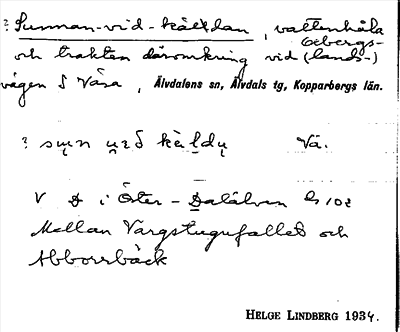 ? Sunnan-vid-källdan, vattenhåla
och trakten däromkring vid (lands-)
Gebergs-
vägen S Våsa, Älvdalens sn, Älvdals tg, Kopparbergs län.
? sun við kèldu Vå.
V D i Öster-Dalälven
Mellan Vargstugufallet och
Abborrbäck
HELGE LINDBERG 1934.